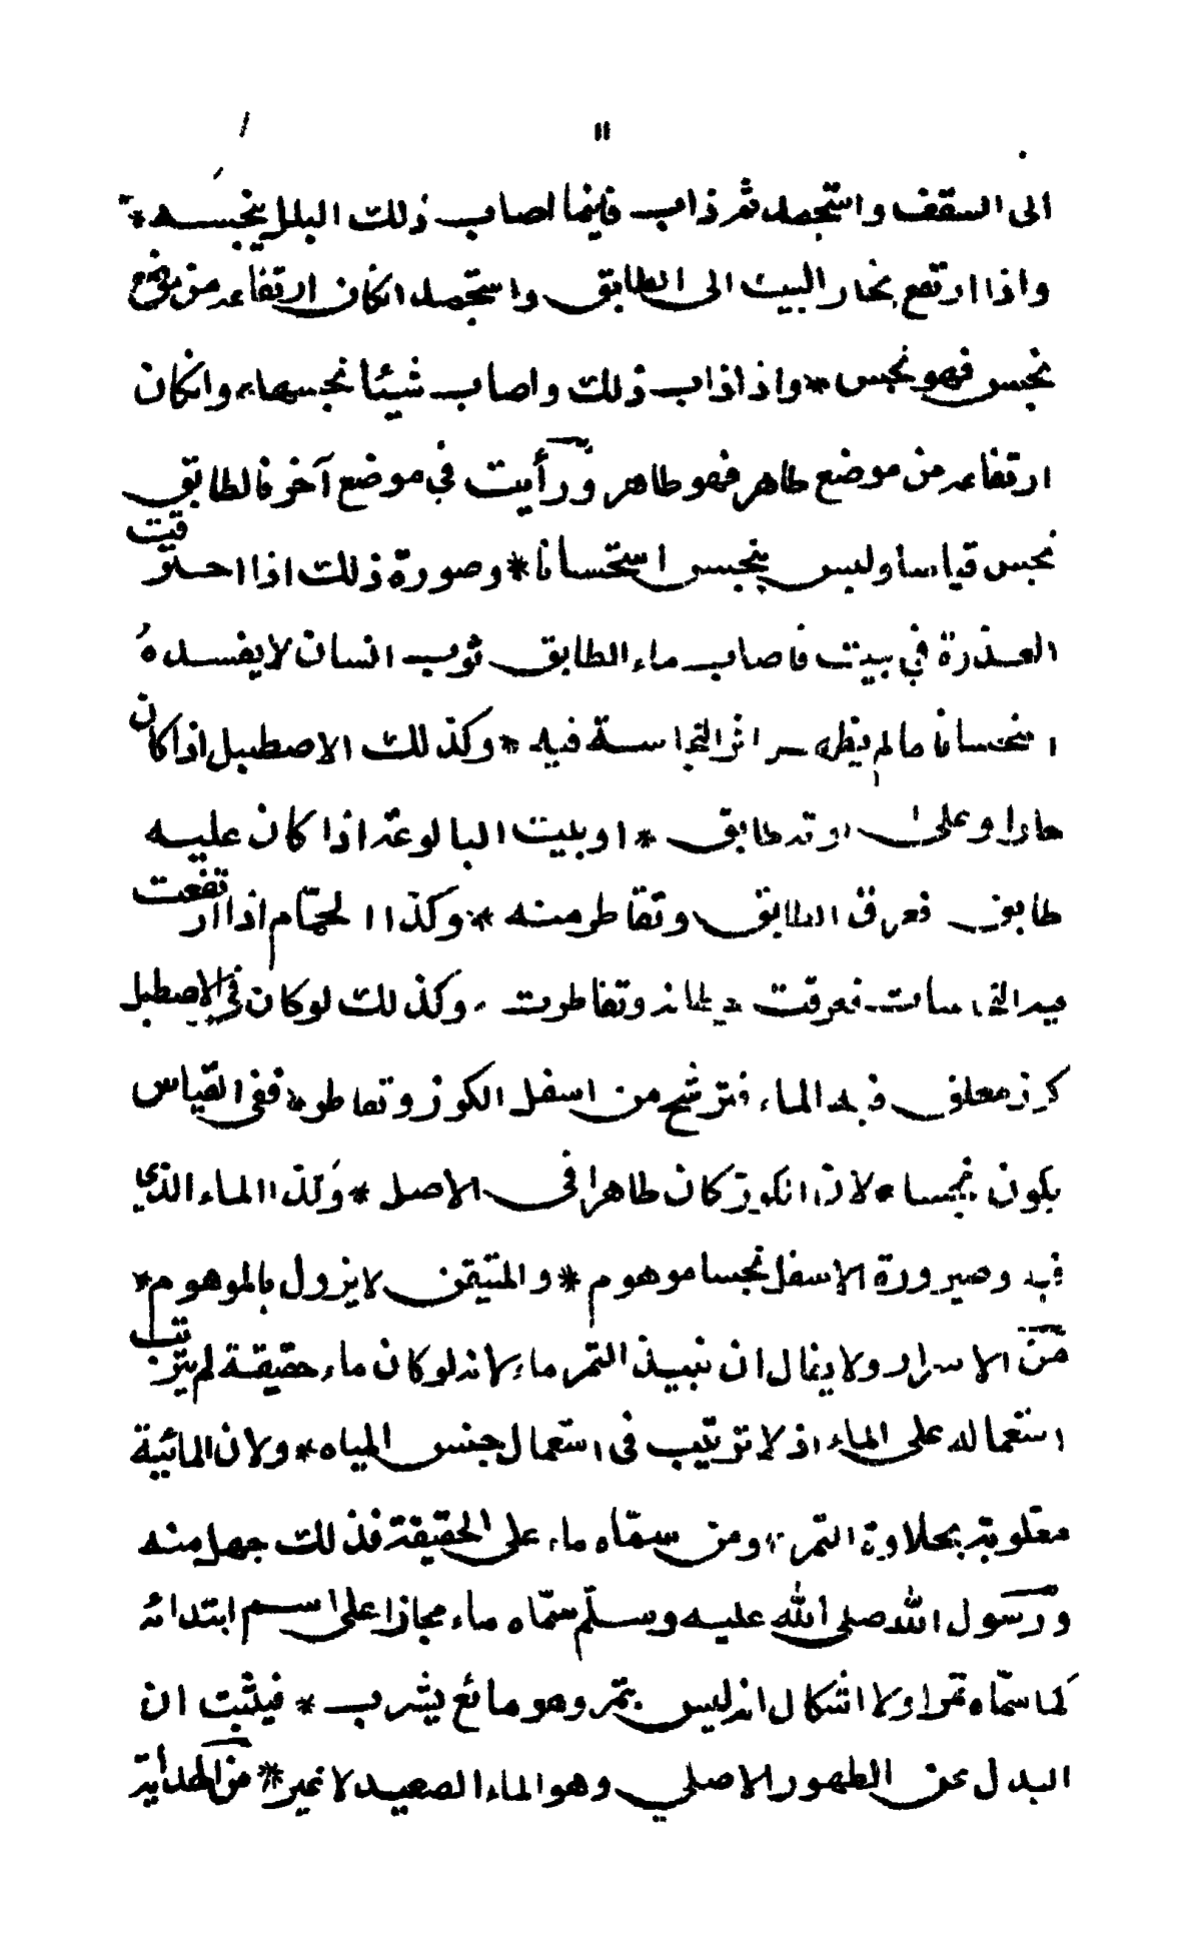 ١١
الى السقف واستجمد ثم ذاب فاينما اصاب ذلك البلل ينجسه *
واذا ارتفع بخار البيت الى الطابق واستجمد انكان ارتفاعه من موضع
نجس فهو نجس * واذا ذاب ذلك واصاب شيئا نجسها * وانكان
ارتفاعه من موضع طاهر فهو طاهر ورأيت في موضع آخر فالطابق
نجس قياسا وليس بنجس استحسانا * وصورة ذلك اذا احترقت
العذرة في بيت فاصاب ماء الطابق ثوب انسان لا يفسده
استحسانا مالم يظهر اثر النجاسة فيه * وكذلك الاصطبل اذا كان
حارا وعلى طابق * او بيت البالوعة اذا كان عليه
طابق فعرق الطابق وتقاطر منه * وكذا الحمّام اذا ارتفعت
فيه النجاسات فعرقت حيطانه وتقاطرت * وكذلك لو كان في الاصطبل
كوز معلق فيه الماء فترشح من اسفل الكوز وتقاطر * ففى القياس
يكون نجسا * لان الكوز كان طاهرا فى الاصل * وكذا الماء الذي
فيه وصيرورة الاسفل نجسا موهوم * والمتيقن لا يزول بالموهوم *
من الاسرار ولا يقال ان نبيذ التمر ماء لانه لو كان ماء حقيقة لم يترتب
استعماله على الماء اذ لا ترتيب فى استعمال جنس المياه * ولان المائية
مغلوبة بحلاوة التمر * ومن سمّاه ماء على الحقيقة فذلك جهل منه
ورسول الله صلى الله عليه وسلّم سمّاه ماء مجازا على اسم ابتدائه
كما سمّاه تمرا ولا اشكال انه ليس بتمر وهو مائع يشرب * فيثبت ان
البدل عن الطهور الاصلي وهو الماء الصعيد لا غير * من الهداية